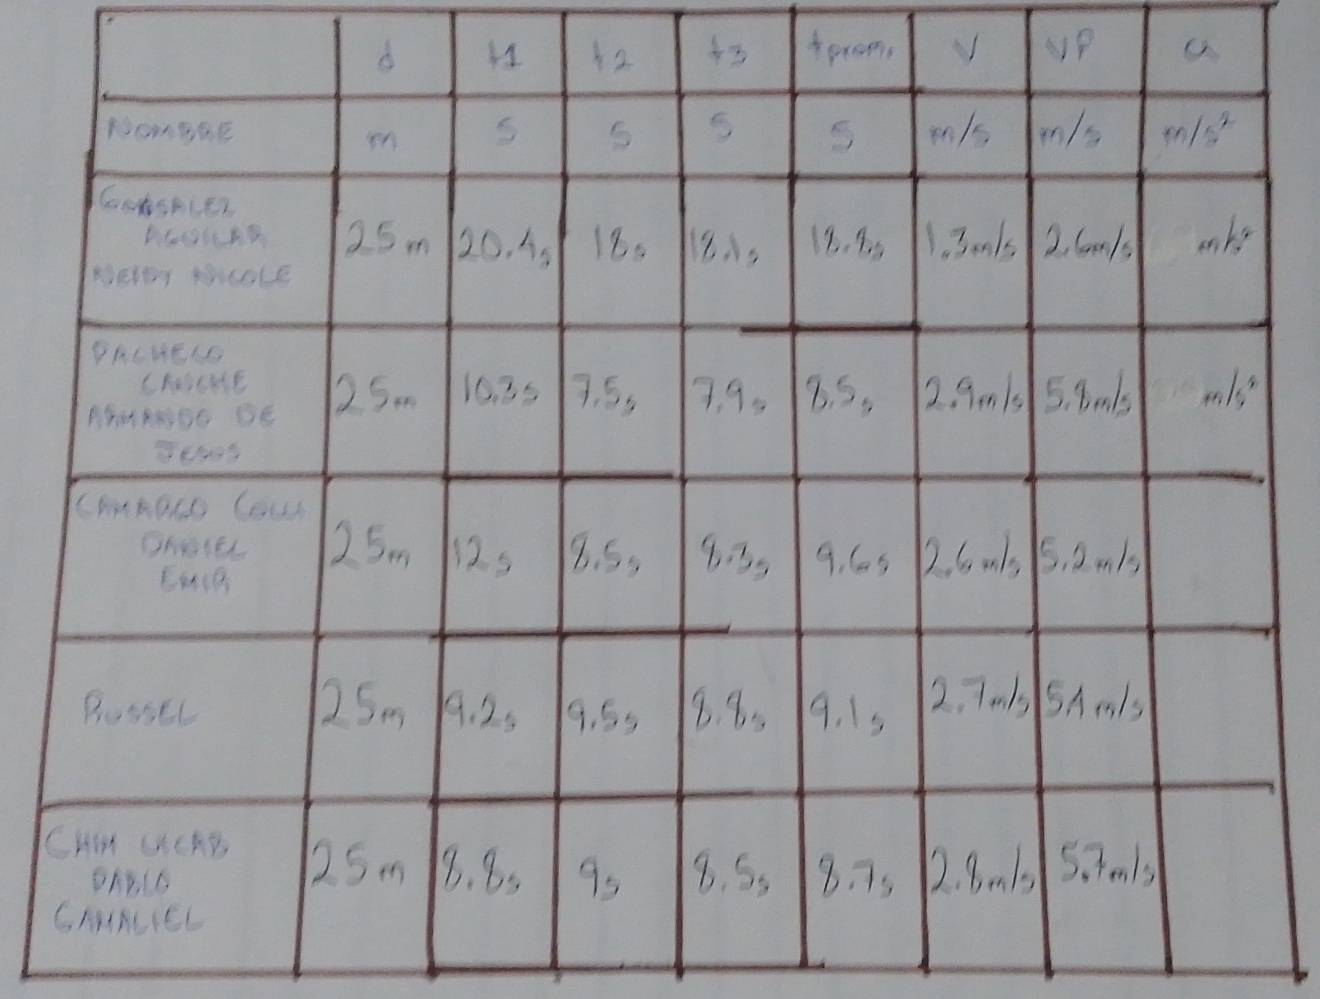 d t1 t2 t3 tprom. V VP a
NOMBRE m s s s s m/s m/s m/s²
AGUILAR
25m 20.4s 18s 18.1s 18.8s 1.3m/s 2.6m/s m/s²
NICOLE
PACHECO
CANCHE
ARMANDO DE
25m 10.3s 7.5s 7.9s 8.5s 2.9m/s 5.8m/s m/s²
JESUS
CAMARGO
DANIEL
25m 12s 8.5s 8.3s 9.6s 2.6m/s 5.2m/s
EMIR
RUSSEL 25m 9.2s 9.5s 8.8s 9.1s 2.7m/s 5.4m/s
CHIM UICAB
PABLO
25m 8.8s 9s 8.5s 8.7s 2.8m/s 5.7m/s
GAMALIEL